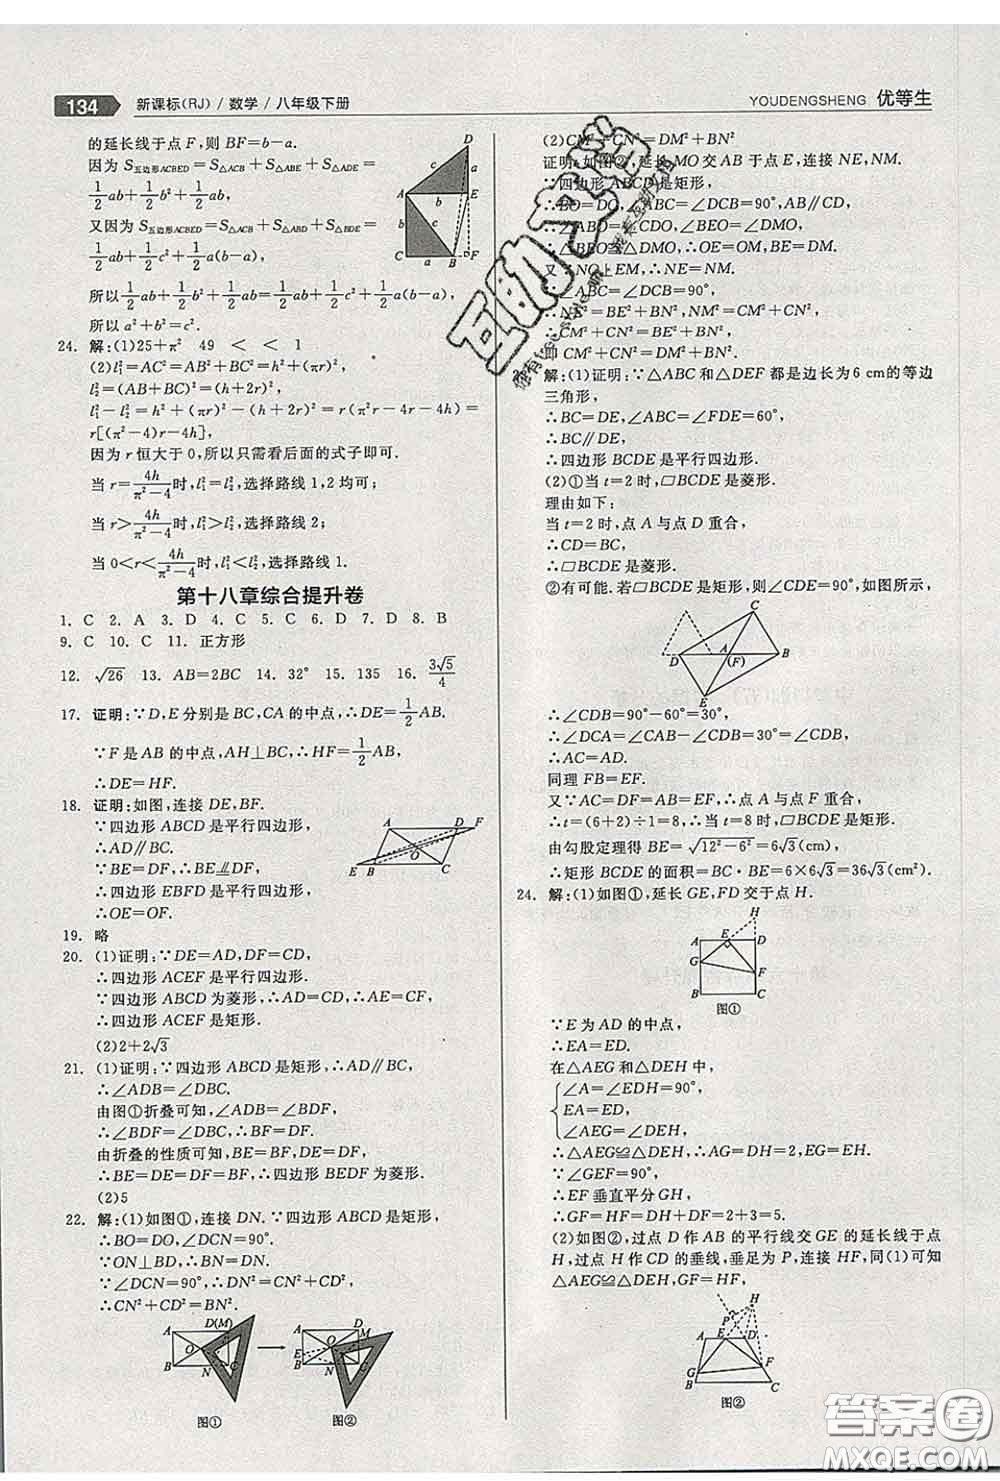 134 新课标(RJ) / 数学 / 八年级下册
YOUDENGSHENG 优等生
的延长线于点F,则BF=b-a.
因为S五边形ACBED=S△ACB+S△ABE+S△ADE=
1/2ab+1/2b²+1/2ab,
又因为S五边形ACBED=S△ACB+S△ABD+S△BDE=
1/2ab+1/2c²+1/2a(b-a),
所以1/2ab+1/2b²+1/2ab=1/2ab+1/2c²+1/2a(b-a),
所以a²+b²=c².
24. 解:(1)25+π² 49 < < 1
(2)l₁²=AC²=AB²+BC²=h²+(πr)²,
l₂²=(AB+BC)²=(h+2r)²,
l₁²-l₂²=h²+(πr)²-(h+2r)²=r(π²r-4r-4h)=
r[(π²-4)r-4h],
因为r恒大于0,所以只需看后面的式子即可.
当r=4h/(π²-4)时,l₁²=l₂²,选择路线1,2均可;
当r>4h/(π²-4)时,l₁²>l₂²,选择路线2;
当0<r<4h/(π²-4)时,l₁²<l₂²,选择路线1.
第十八章综合提升卷
1. C 2. A 3. D 4. C 5. C 6. D 7. D 8. B
9. C 10. C 11. 正方形
12. √26 13. AB=2BC 14. 32° 15. 135 16. 3√5/4
17. 证明:∵D,E分别是BC,CA的中点,∴DE=1/2AB.
∵F是AB的中点,AH⊥BC,∴HF=1/2AB,
∴DE=HF.
18. 证明:如图,连接DE,BF.
∵四边形ABCD是平行四边形,
∴AD∥BC.
∵BE=DF,∴BE∥DF,
∴四边形EBFD是平行四边形,
∴OE=OF.
19. 略
20. (1)证明:∵DE=AD,DF=CD,
∴四边形ACEF是平行四边形.
∵四边形ABCD为菱形,∴AD=CD,∴AE=CF,
∴四边形ACEF是矩形.
(2)2+2√3
21. (1)证明:∵四边形ABCD是矩形,∴AD∥BC,
∴∠ADB=∠DBC.
由图①折叠可知,∠BDF=∠ADB,
∴∠DBC=∠BDF,∴BF=DF.
由折叠的性质可知,BE=DE,BF=DF,
∴BE=DE=DF=BF,∴四边形BEDF为菱形.
(2)5
22. 解:(1)如图①,连接DN.∵四边形ABCD是矩形,
∴BO=DO,∠DCN=90°.
∵ON⊥BD,∴NB=ND.
∵∠DCN=90°,∴ND²=NC²+CD²,
∴CN²+CD²=BN².
图① 图②
(2)CM²+CN²=DM²+BN²
证明:如图②,延长MO交AB于点E,连接NE,NM.
∵四边形ABCD是矩形,
∴BO=DO,∠ABC=∠DCB=90°,AB∥CD,
∴∠ABO=∠CDO,∠BEO=∠DMO,
∴△BEO≌△DMO,∴OE=OM,BE=DM.
又∵NO⊥EM,∴NE=NM.
∵∠ABC=∠DCB=90°,
∴NE²=BE²+BN²,NM²=CM²+CN²,
∴CM²+CN²=BE²+BN²,
即CM²+CN²=DM²+BN².
解:(1)证明:∵△ABC和△DEF都是边长为6 cm的等边
三角形,
∴BC=DE,∠ABC=∠FDE=60°,
∴BC∥DE,
∴四边形BCDE是平行四边形.
(2)①当t=2时,▱BCDE是菱形.
理由如下:
当t=2时,点A与点D重合,
∴CD=BC,
∴▱BCDE为菱形.
②有可能.若▱BCDE是矩形,则∠CDE=90°,如图所示,
∴∠CDB=90°-60°=30°,
∴∠DCA=∠CAB-∠CDB=30°=∠CDB,
∴AC=AD.
同理FB=EF.
又∵AC=DF=AB=EF,∴点A与点F重合,
∴t=(6+2)÷1=8,∴当t=8时,▱BCDE是矩形.
由勾股定理得BE=√(12²-6²)=6√3(cm),
∴矩形BCDE的面积=BC·BE=6×6√3=36√3(cm²).
24. 解:(1)如图①,延长GE,FD交于点H.
图①
∵E为AD的中点,
∴EA=ED.
在△AEG和△DEH中,
∠A=∠EDH=90°,
EA=ED,
∠AEG=∠DEH,
∴△AEG≌△DEH,∴AG=DH=2,EG=EH.
∵∠GEF=90°,
∴EF垂直平分GH,
∴GF=HF=DH+DF=2+3=5.
(2)如图②,过点D作AB的平行线交GE的延长线于点
H,过点H作CD的垂线,垂足为P,连接HF,同(1)可知
△AEG≌△DEH,GF=HF,
图②
互助文档
答案圈
MXQE.COM